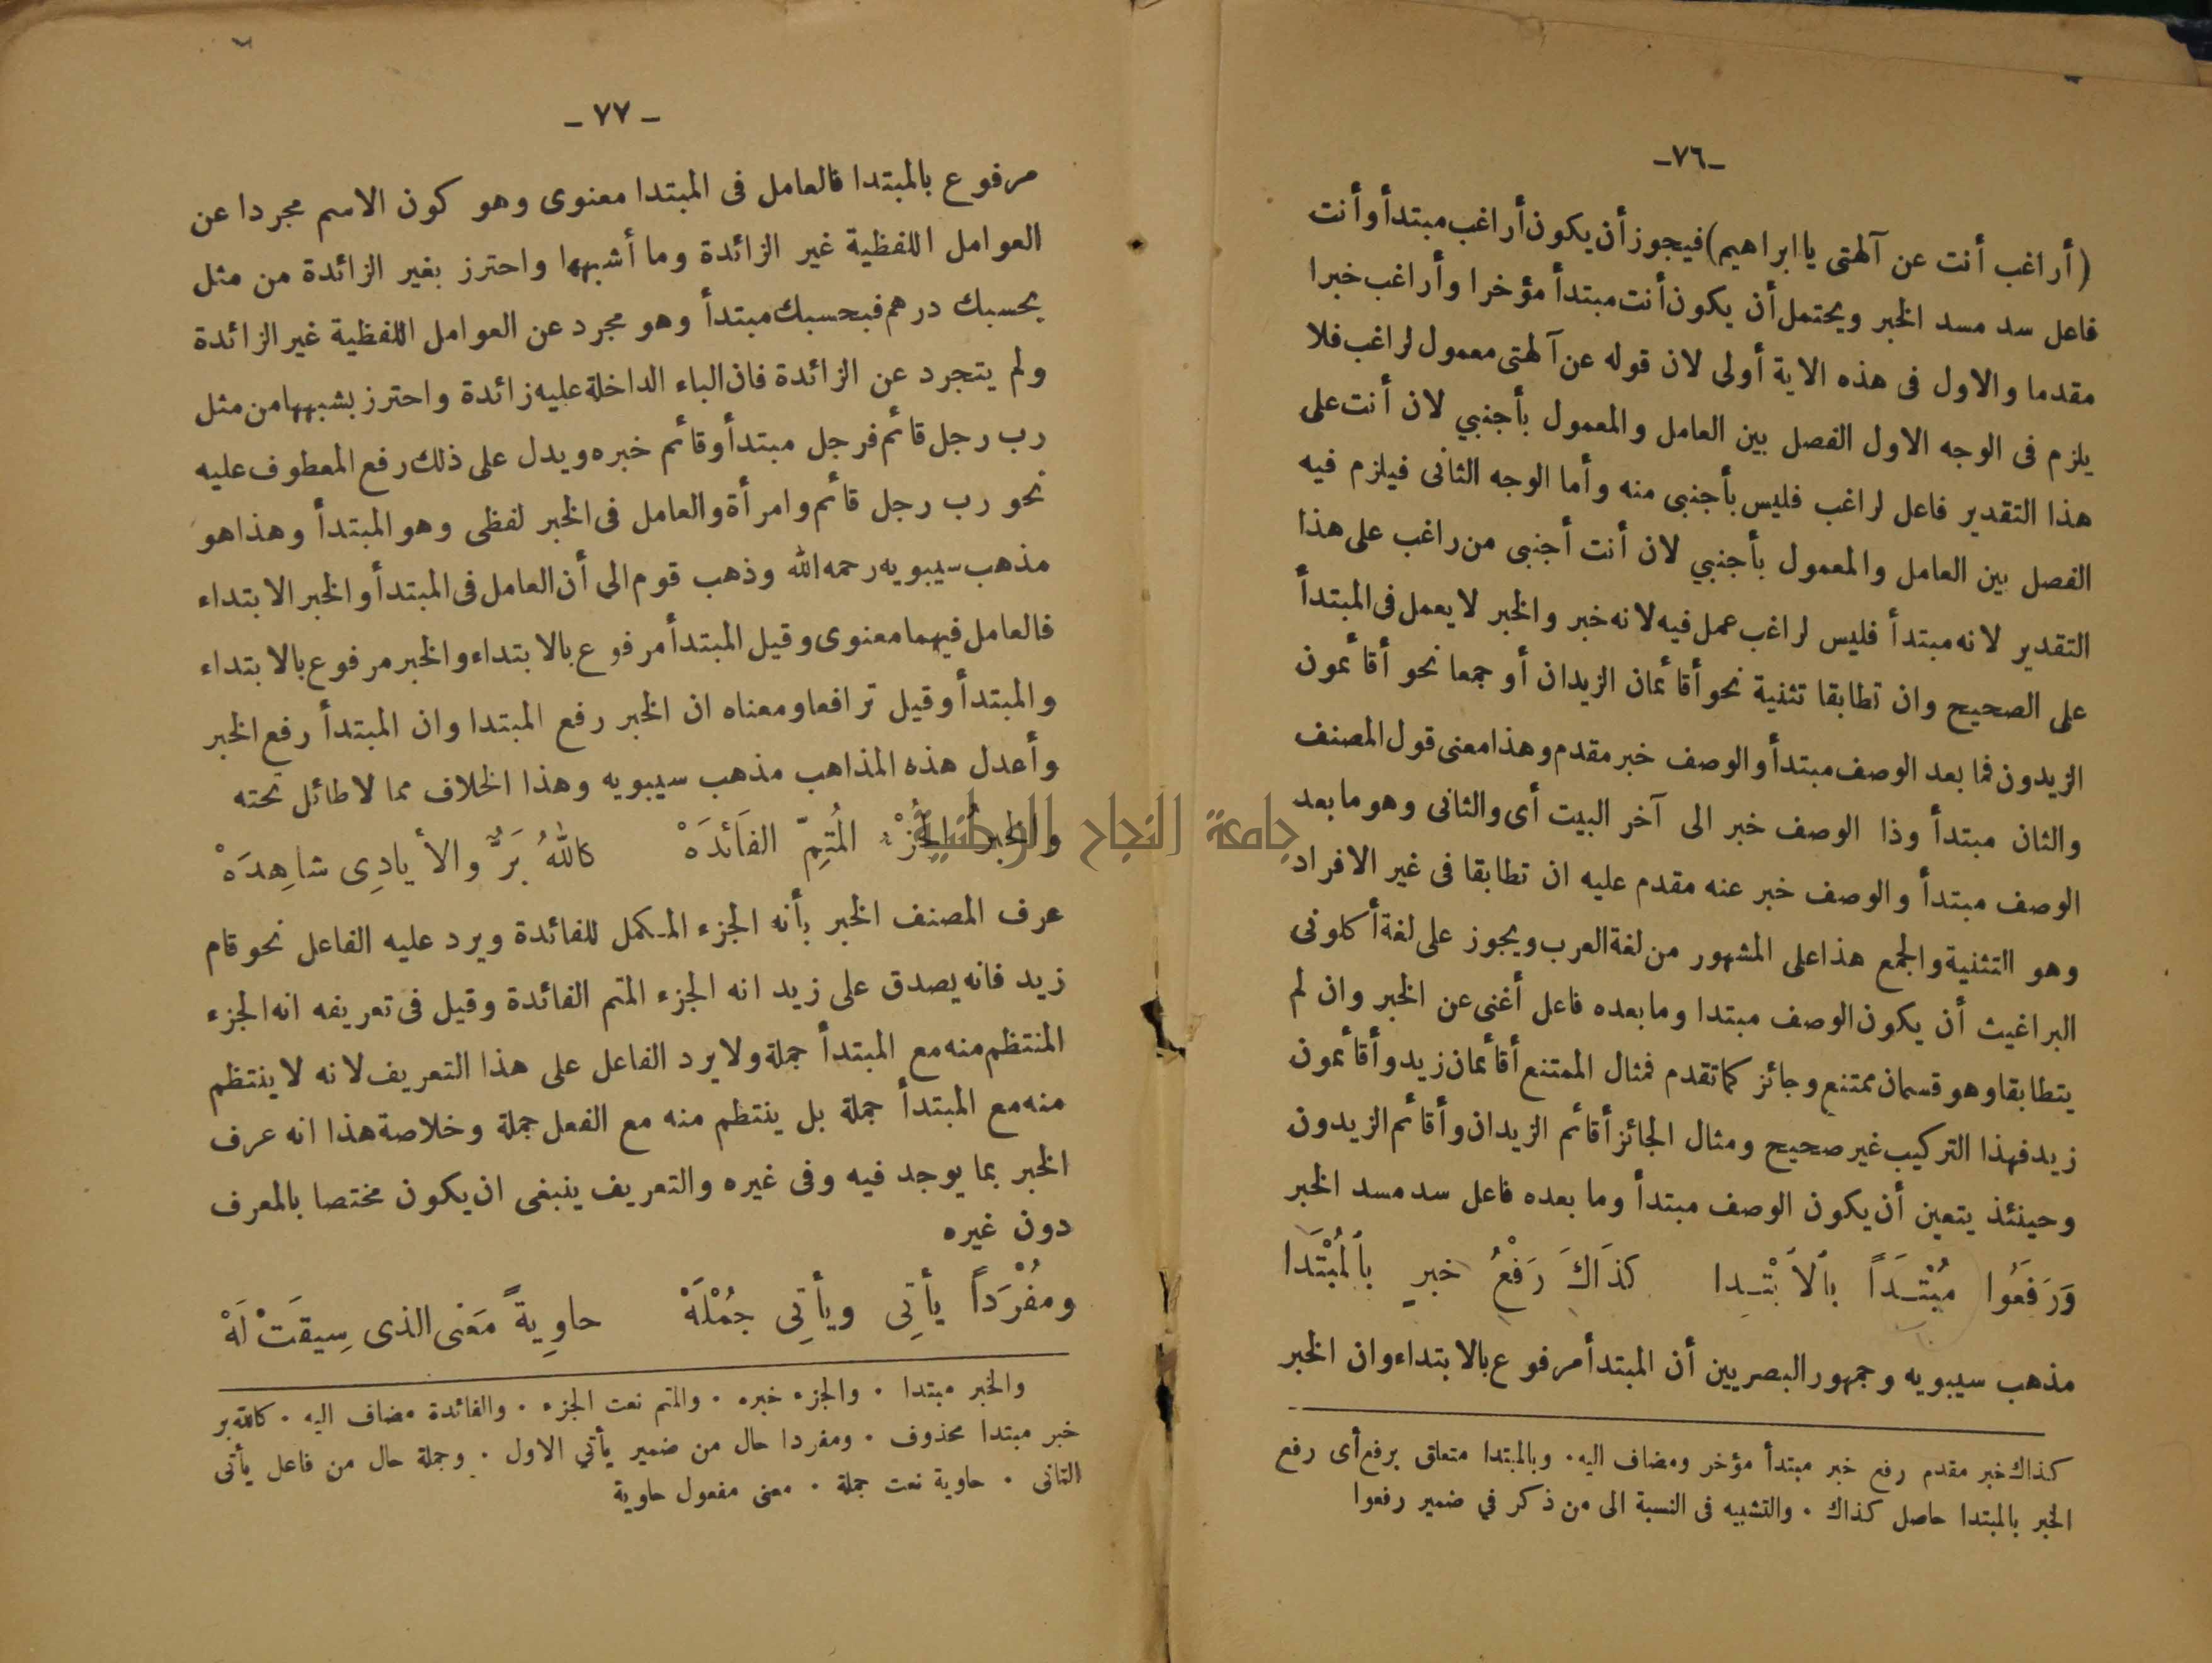 -٧٦-
(أراغب أنت عن آلهتى يا ابراهيم) فيجوز أن يكون أراغب مبتدأ وأنت
فاعل سد مسد الخبر ويحتمل أن يكون أنت مبتدأ مؤخرا وأراغب خبرا
مقدما والاول فى هذه الاية أولى لان قوله عن آلهتى معمول لراغب فلا
يلزم فى الوجه الاول الفصل بين العامل والمعمول بأجنبي لان أنت على
هذا التقدير فاعل لراغب فليس بأجنبى منه وأما الوجه الثانى فيلزم فيه
الفصل بين العامل والمعمول بأجنبي لان أنت أجنبى من راغب على هذا
التقدير لانه مبتدأ فليس لراغب عمل فيه لانه خبر والخبر لا يعمل فى المبتدأ
على الصحيح وان تطابقا تثنية نحو أقائمان الزيدان أو جمعا نحو أقائمون
الزيدون فما بعد الوصف مبتدأ والوصف خبر مقدم وهذا معنى قول المصنف
والثان مبتدأ وذا الوصف خبر الى آخر البيت أى والثانى وهو ما بعد
الوصف مبتدأ والوصف خبر عنه مقدم عليه ان تطابقا فى غير الافراد
وهو التثنية والجمع هذا على المشهور من لغة العرب ويجوز على لغة أكلونى
البراغيث أن يكون الوصف مبتدا وما بعده فاعل أغنى عن الخبر وان لم
يتطابقا وهو قسمان ممتنع وجائز كما تقدم فمثال الممتنع أقائمان زيد وأقائمون
زيد فهذا التركيب غير صحيح ومثال الجائز أقائم الزيدان وأقائم الزيدون
وحينئذ يتعين أن يكون الوصف مبتدأ وما بعده فاعل سد مسد الخبر
وَرَفَعُوا مُبْتَدَأً بِالاَبْتِدا كذَاكَ رَفْعُ خبرٍ بالْمُبْتَدَا
مذهب سيبويه وجمهور البصريين أن المبتدأ مرفوع بالابتداء وان الخبر
كذاك خبر مقدم رفع خبر مبتدأ مؤخر ومضاف اليه . وبالمبتدا متعلق برفع أى رفع
الخبر بالمبتدا حاصل كذاك . والتشبيه فى النسبة الى من ذكر في ضمير رفعوا
- ٧٧ -
مرفوع بالمبتدا فالعامل فى المبتدا معنوى وهو كون الاسم مجردا عن
العوامل اللفظية غير الزائدة وما أشبهها واحترز بغير الزائدة من مثل
بحسبك درهم فبحسبك مبتدأ وهو مجرد عن العوامل اللفظية غير الزائدة
ولم يتجرد عن الزائدة فان الباء الداخلة عليه زائدة واحترز بشبهها من مثل
رب رجل قائم فرجل مبتدأ وقائم خبره ويدل على ذلك رفع المعطوف عليه
نحو رب رجل قائم وامرأة والعامل فى الخبر لفظى وهو المبتدأ وهذا هو
مذهب سيبويه رحمه الله وذهب قوم الى أن العامل فى المبتدأ والخبر الابتداء
فالعامل فيهما معنوى وقيل المبتدأ مرفوع بالابتداء والخبر مرفوع بالابتداء
والمبتدأ وقيل ترافعا ومعناه ان الخبر رفع المبتدا وان المبتدأ رفع الخبر
وأعدل هذه المذاهب مذهب سيبويه وهذا الخلاف مما لا طائل تحته
والخبرُ الجُزْءُ المُتِمّ الفَائدَهْ كاللهُ بَرٌّ والأيادِى شاهِدَهْ
عرف المصنف الخبر بأنه الجزء المكمل للفائدة ويرد عليه الفاعل نحو قام
زيد فانه يصدق على زيد انه الجزء المتم الفائدة وقيل فى تعريفه انه الجزء
المنتظم منه مع المبتدأ جملة ولا يرد الفاعل على هذا التعريف لانه لا ينتظم
منه مع المبتدأ جملة بل ينتظم منه مع الفعل جملة وخلاصة هذا انه عرف
الخبر بما يوجد فيه وفى غيره والتعريف ينبغى ان يكون مختصا بالمعرف
دون غيره
ومُفْرَداً يأتِى ويأتِى جُمْلَهْ حاوِيةً مَعْنى الذى سِيقَتْ لَهْ
والخبر مبتدا . والجزء خبره . والمتم نعت الجزء . والفائدة مضاف اليه . كالله بر
خبر مبتدا محذوف . ومفردا حال من ضمير يأتي الاول . وجملة حال من فاعل يأتى
الثانى . حاوية نعت جملة . معنى مفعول حاوية
جامعة النجاح الوطنية